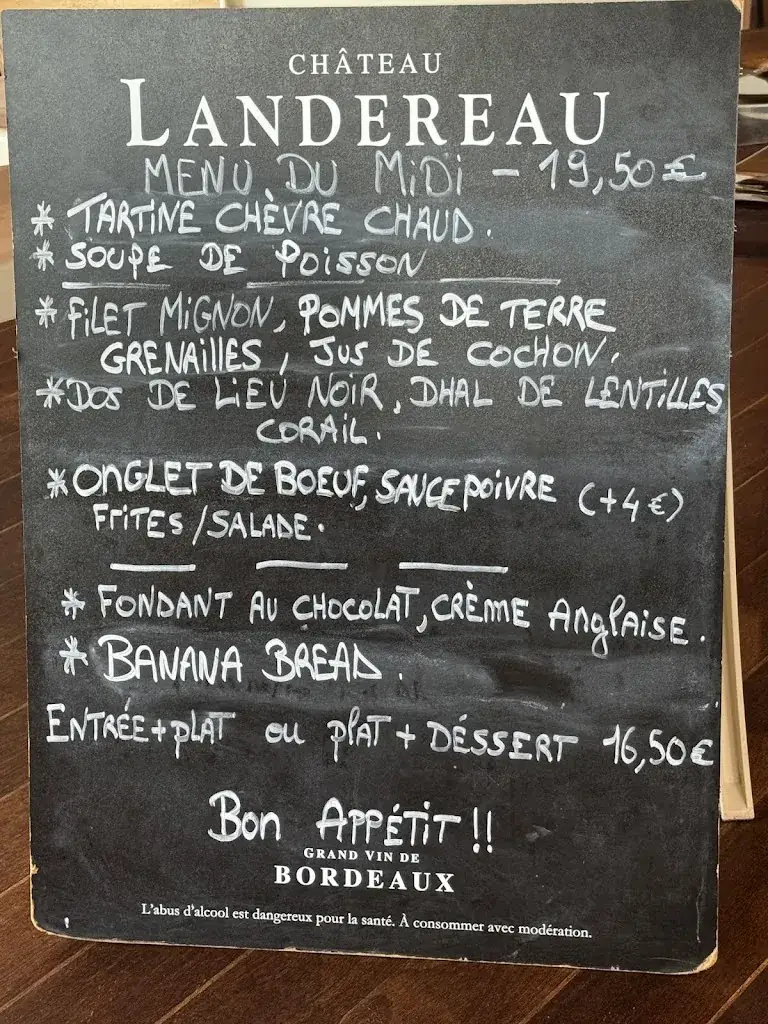 CHÂTEAU
LANDEREAU
MENU DU MiDi - 19,50 €
* TARTINE CHÈVRE CHAUD.
* SOUPE DE POISSON
* FiLET MiGNON, POMMES DE TERRE
GRENAiLLES, JUS DE COCHON.
* DOS DE LiEU NOiR, DHAL DE LENTiLLES
CORAiL.
* ONGLET DE BOEUF, SAUCE POIVRE (+4 €)
FRiTES/SALADE.
* FONDANT AU CHOCOLAT, CRÈME ANglAiSE.
* BANANA BREAD.
ENTRÉE+plAT ou plAT + DÉSSERT 16,50€
Bon APPÉTiT !!
GRAND VIN DE
BORDEAUX
L'abus d'alcool est dangereux pour la santé. À consommer avec modération.